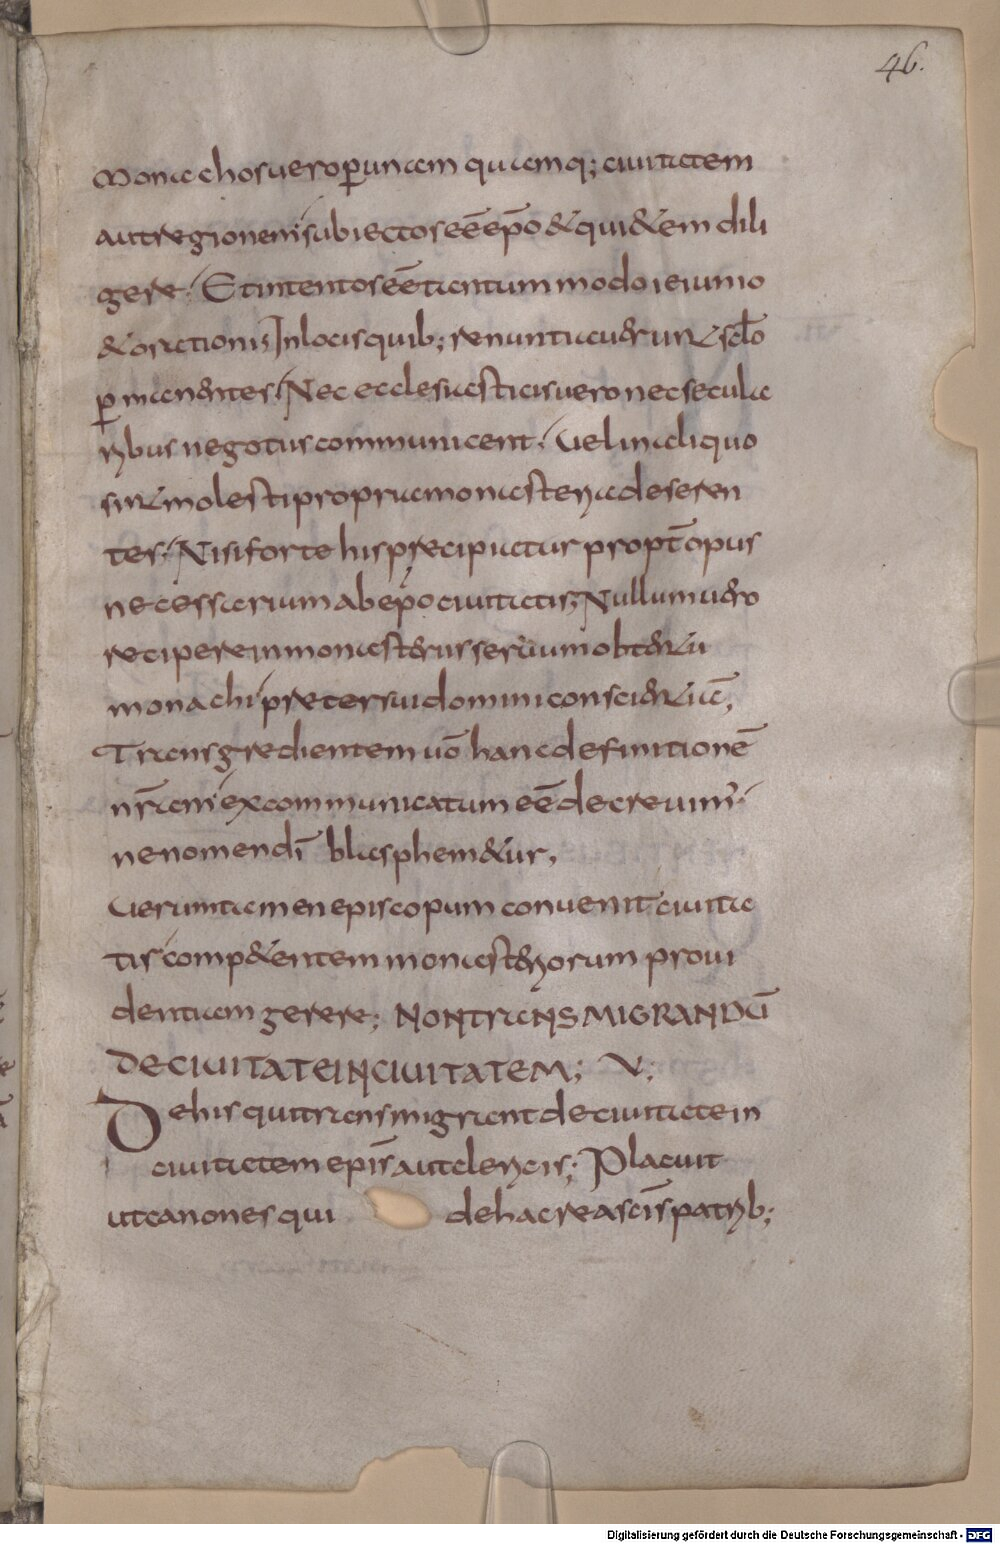 46.
Monachos vero p̱ unam quamq; ciuitatem
aut regionem subiectos eē ep̄o & qui&em dili
gere. Et intentos eē tantummodo ieiunio
& orationi; In locis quib; renuntiauerunt sc̄lo
p̱manentes. Nec ecclesiasticis uero nec secula
ribus negotiis communicent. Uel in aliquo
sint molesti propria monasteria deseren
tes. Nisi forte his precipiatur propt̄ opus
necessarium ab ep̄o ciuitatis; Nullum uero
recipere in monasteriis seruum obtentu
monachi preter sui domini conscientiā;
Transgredientem uō hanc definitionē
nr̄am excommunicatum eē decreuim;
ne nomen dī blasphem&ur,
Uerumtamen episcopum conuenit ciuita
tis comp&entem monasteriorum proui
dentiam gerere; NON TRANSMIGRANDŪ
DE CIUITATE IN CIUITATEM; V;
De his qui transmigrant de ciuitate in
ciuitatem epīs aut clericis; Placuit
ut canones qui de hac re a scīs patrib;
Digitalisierung gefördert durch die Deutsche Forschungsgemeinschaft - DFG